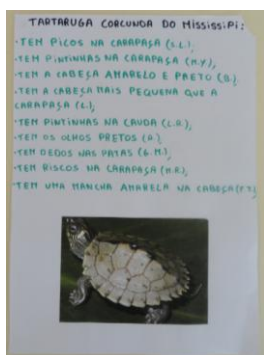 TARTARUGA CORCUNDA DO MISSISSIPI:
·TEM PICOS NA CARAPAÇA (L.L.),
·TEM PINTINHAS NA CARAPAÇA (M.Y.),
·TEM A CABEÇA AMARELO E PRETO (D.)
·TEM A CABEÇA MAIS PEQUENA QUE A
CARAPAÇA (L.),
·TEM PINTINHAS NA CAUDA (L.R.),
·TEM OS OLHOS PRETOS (R.)
·TEM DEDOS NAS PATAS (G.M.),
·TEM RISCOS NA CARAPAÇA (M.R.),
·TEM UMA MANCHA AMARELA NA CABEÇA